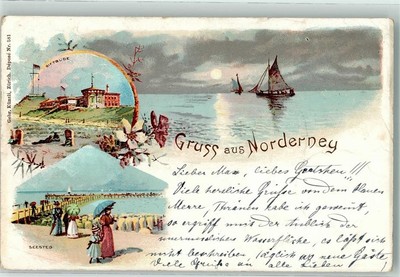 GIFTBUDE
Gebr. Künzli, Zürich. Dépose Nr. 141
Gruss aus Norderney
SEESTEG
Lieber Max, liebes Gretchen!!!
Viele herzliche Grüße von dem blauen
Meere, Thränen habe ich geweint,
so ergriff mich der Anblick der
unermesslichen Wasserfläche, es läßt sich
nicht beschreiben, täglich an neue Gäste
Viele Grüße an alle Lieben